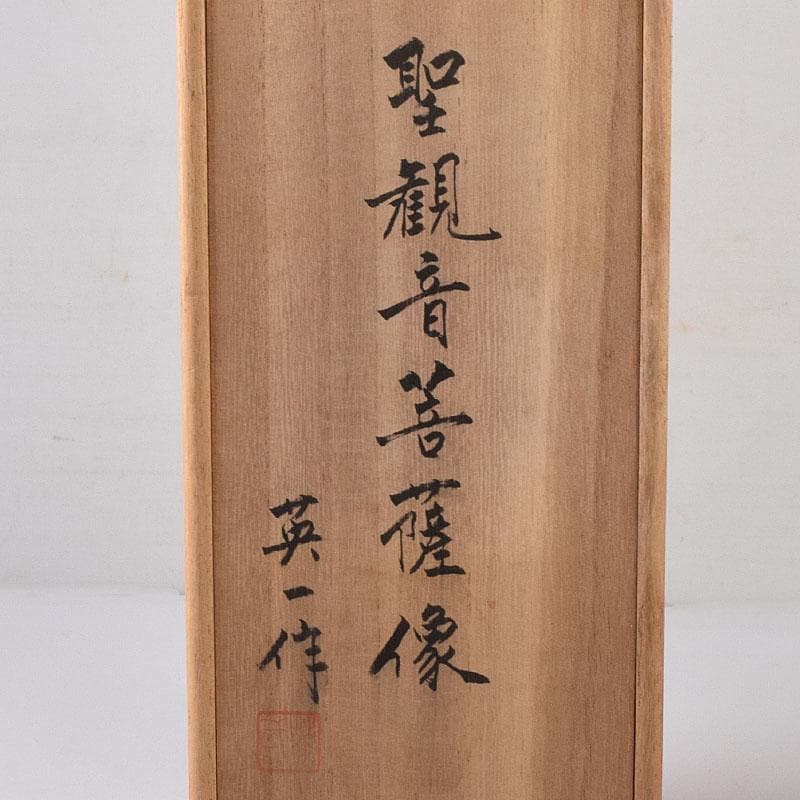 聖観音菩薩像
英一作